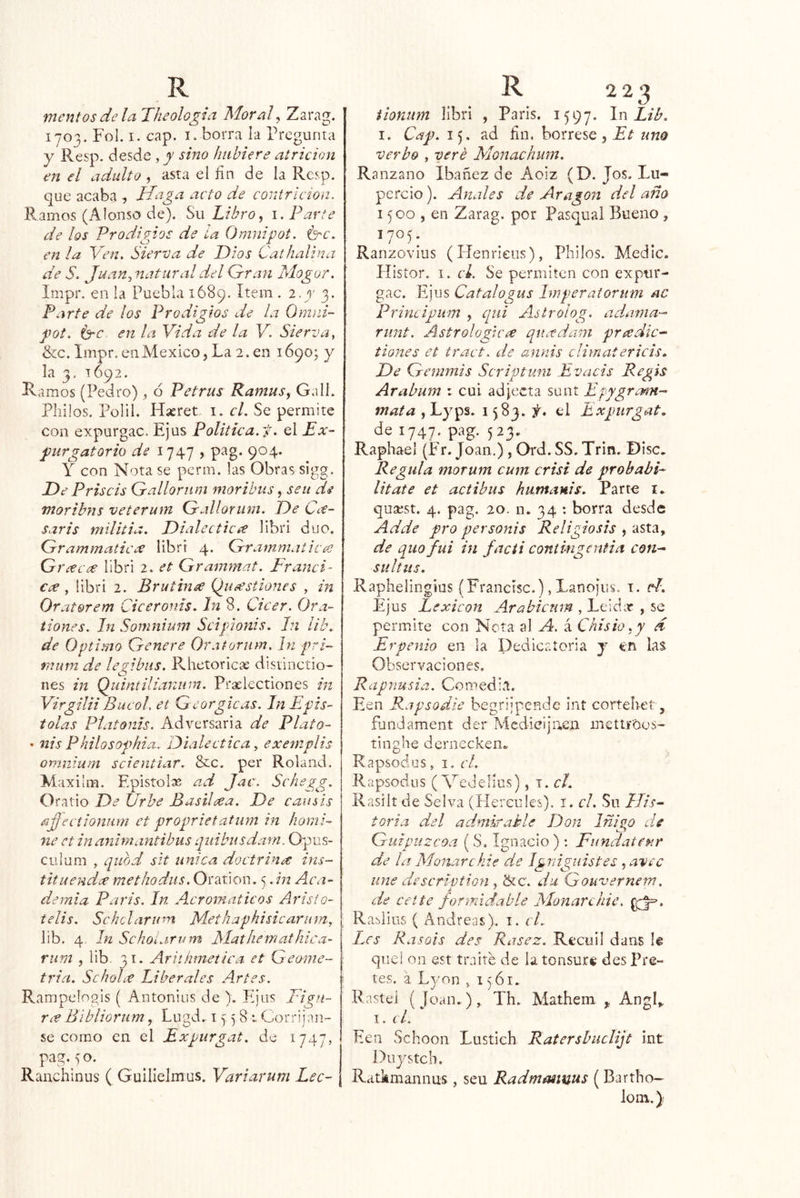 R
mentos de la Theologia Moral, Zarag.
1703. Fol. 1. cap. 1. borra la Pregunta
y Resp. desde , y sino hubiere atricion
en el adulto , asta el fin de la Resp.
que acaba , Haga acto de contricion.
Ramos (Alonso de). Su Libro, 1. Parte
de los Prodigios de la Omnipot. &c.
en la Ven. Sierva de Dios Cathalina
de S. Juan, natural del Gran Mogor.
Impr. en la Puebla 1689. Item . 2. y 3.
Parte de los Prodigios de la Omni-
pot. &c en la Vida de la V. Sierva,
&c. Impr. en Mexico, La 2. en 1690; y
la 3. 1692.
Ramos (Pedro) , ó Petrus Ramus, Gall.
Philos. Polil. Hæret. 1. cl. Se permite
con expurgac. Ejus Politica. ℣. el Ex-
purgatorio de 1747 , pag. 904.
Y con Nota se perm. las Obras sigg.
De Priscis Gallorum moribus, seu de
moribns veterum Gallorum. De Cæ-
saris militia. Dialecticæ libri duo.
Grammaticæ libri 4. Grammaticæ
Græcæ libri 2. et Grammat. Franci-
cæ , libri 2. Brutinæ Quæstiones , in
Oratorem Ciceronis. In 8. Cicer. Ora-
tiones. In Somnium Scipionis. In lib.
de Optimo Genere Oratorum. In pri-
mum de legibus. Rhetoricæ distinctio-
nes in Quintilianum. Prælectiones in
Virgilii Bucol. et Georgicas. In Epis-
tolas Platonis. Adversaria de Plato-
nis Philosophia. Dialectica, exemplis
omnium scientiar. &c. per Roland.
Maxilm. Epistolæ ad Jac. Schegg.
Oratio De Urbe Basilæa. De causis
affectionum et proprietatum in homi-
ne et in animantibus quibusdam. Opus-
culum , quòd sit unica doctrinæ ins-
tituendæ methodus. Oration. 5. in Aca-
demia Paris. In Acromaticos Aristo-
telis. Scholarum Methaphisicarum,
lib. 4 In Scholarum Mathemathica-
rum , lib. 31. Arithmetica et Geome-
tria. Scholæ Liberales Artes.
Rampelogis ( Antonius de ). Ejus Figu-
ræ Bibliorum, Lugd. 1558: Corrijan-
se como en el Expurgat. de 1747,
pag. 50.
Ranchinus ( Guilielmus. Variarum Lec-
R 223
tionum libri , Paris. 1597. In Lib.
1. Cap. 15. ad fin. borrese , Et uno
verbo , verè Monachum.
Ranzano Ibañez de Aoiz (D. Jos. Lu-
percio ). Anales de Aragon del año
1500 , en Zarag. por Pasqual Bueno ,
1705.
Ranzovius (Henrieus), Philos. Medic.
Histor. 1. cl. Se permiten con expur-
gac. Ejus Catalogus Imperatorum ac
Principum , qui Astrolog. adama-
runt. Astrologicæ quædam prædic-
tiones et tract. de annis climatericis.
De Gemmis Scriptum Evacis Regis
Arabum : cui adjecta sunt Epygram-
mata , Lyps. 1583. ℣. el Expurgat.
de 1747. pag. 523.
Raphael (Fr. Joan.) , Ord. SS. Trin. Disc.
Regula morum cum crisi de probabi-
litate et actibus humanis. Parte 1.
quæst. 4. pag. 20. n. 34 : borra desde
Adde pro personis Religiosis , asta,
de quo fui in facti contingentia con-
sultus.
Raphelingius (Francisc.), Lanojus. 1. cl.
Ejus Lexicon Arabicum , Leidæ , se
permite con Nota al A. á Chisio, y á
Erpenio en la Dedicatoria y en las
Observaciones.
Rapnusia. Comedia.
Een Rapsodie begrijpende int cortehet ,
fundament der Medicijnen mettroos-
tinghe dernecken.
Rapsodus, 1. cl.
Rapsodus ( Vedelius) , 1. cl.
Rasilt de Selva (Hercules). 1. cl. Su His-
toria del admirable Don Iñigo de
Guipuzcoa ( S. Ignacio ) : Fundateur
de la Monarchie de Igniguistes , avec
une description , &c. du Gouvernem.
de cette formidable Monarchie. ☞.
Raslius ( Andreas). 1. cl.
Les Rasois des Rasez. Recuil dans le
quel on est traitè de la tonsure des Pre-
tes. à Lyon , 1561.
Rastel (Joan.), Th. Mathem , Angl.
1. cl.
Een Schoon Lustich Ratersbuclijt int
Duystch.
Ratkmannus , seu Radmannus ( Bartho-
lom.)